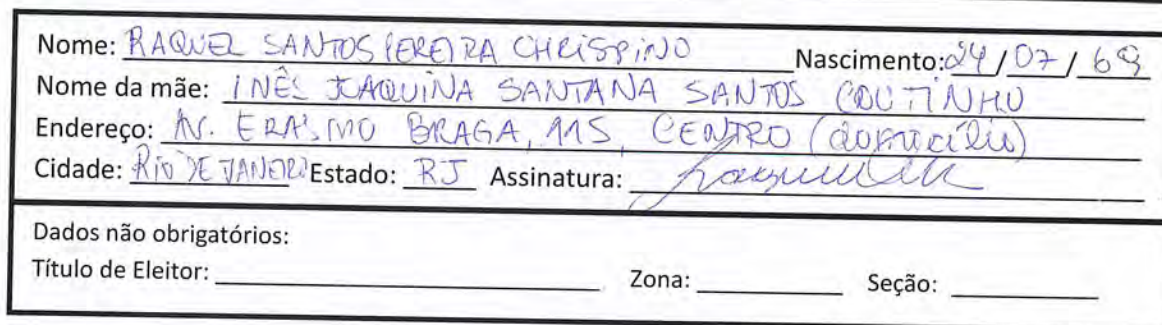 Nome: RAQUEL SANTOS PEREIRA CHRISPINO Nascimento: 24/07/69
Nome da mãe: INÊS JOAQUINA SANTANA SANTOS COUTINHO
Endereço: AV. ERASMO BRAGA, 115, CENTRO (domicílio)
Cidade: RIO DE JANEIRO Estado: RJ Assinatura:
Dados não obrigatórios:
Título de Eleitor: Zona: Seção: